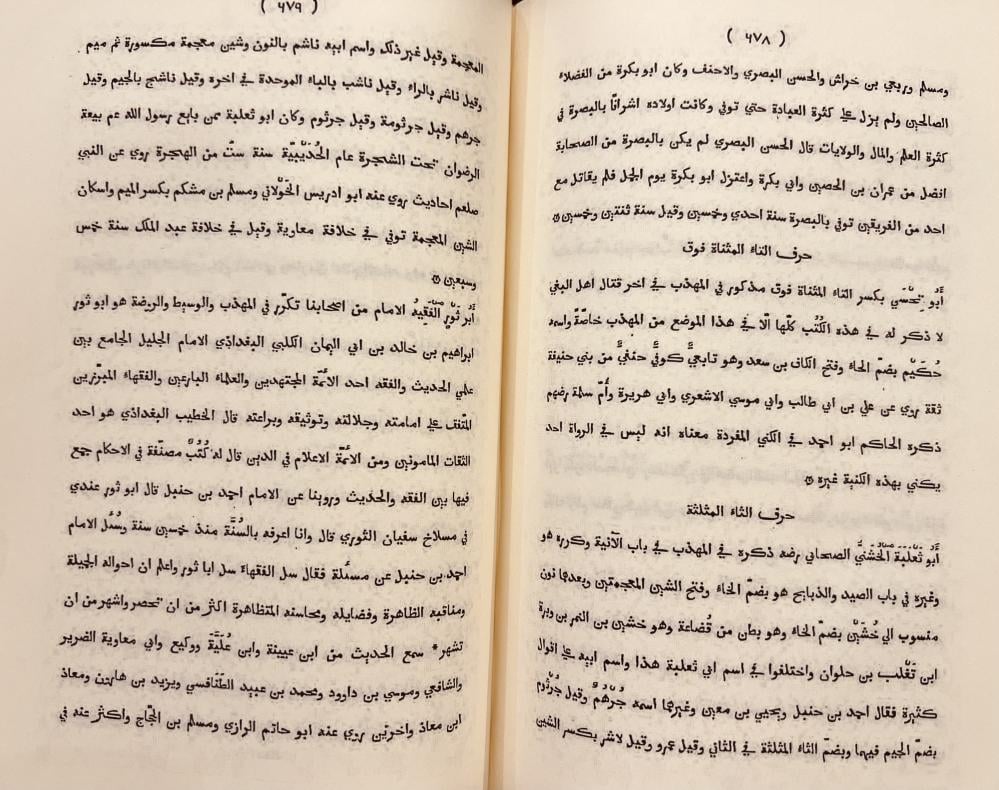 ( ٤٧٨ )
ومسلم وربعي بن خراش والحسن البصري والاحنف وكان ابو بكرة من الفضلاء
الصالحين ولم يزل على كثرة العبادة حتي توفي وكانت اولاده اشرافًا بالبصرة في
كثرة العلم والمال والولايات قال الحسن البصري لم يكن بالبصرة من الصحابة
افضل من عمران بن الحصين وابي بكرة واعتزل ابو بكرة يوم الجمل فلم يقاتل مع
احد من الفريقين توفي بالبصرة سنة احدي وخمسين وقيل سنة ثنتين وخمسين ۞
حرف التاء المثناة فوق
أَبُو تِحْسَي بكسر التاء المثناة فوق مذكور في المهذب في اخر قتال اهل البغي
لا ذكر له في هذه الكُتُب كلّها الّا في هذا الموضع من المهذب خاصّةً واسمه
حُكَيْم بضمّ الحاء وفتح الكاف بن سعد وهو تابعيٌّ كوفيٌّ حنفيٌّ من بني حنيفة
ثقة روي عن علي بن ابي طالب وابي موسي الاشعري وابي هريرة وأُمّ سلمة رضهم
ذكره الحاكم ابو احمد في الكني المفردة معناه انه ليس في الرواة احد
يكني بهذه الكنية غيره ۞
حرف الثاء المثلثة
أَبُو ثَعْلَبَةَ الخُشَنيُّ الصحابي رضه ذكره في المهذب في باب الآنية وكرره هو
وغيره في باب الصيد والذبايح هو بضمّ الخاء وفتح الشين المعجمتين وبعدها نون
منسوب الي خُشَيْن بضمّ الخاء وهو بطن من قُضاعة وهو خشين بن النمر بن وبرة
ابن تَغْلب بن حلوان واختلفوا في اسم ابي ثعلبة هذا واسم ابيه على اقوال
كثيرة فقال احمد بن حنبل ويحيي بن معين وغيرها اسمه جُرْهُمٌ وقيل جُرْثُوم
بضمّ الجيم فيها وبضمّ الثاء المثلثة في الثاني وقيل عمرو وقيل لاشر بكسر الشين
( ٤٧٩ )
المعجمة وقيل غير ذلك واسم ابيه ناشم بالنون وشين معجمة مكسورة ثم ميم
وقيل ناشر بالراء وقيل ناشب بالباء الموحدة في اخره وقيل ناشج بالجيم وقيل
جرهم وقيل جرثومة وقيل جرثوم وكان ابو ثعلبة ممن بايع رسول الله عم بيعة
الرضوان تحت الشجرة عام الحُدَيْبيّة سنة ستّ من الهجرة روي عن النبي
صلعم احاديث روي عنه ابو ادريس الخَوْلاني ومسلم بن مشكم بكسر الميم واسكان
الشين المعجمة توفي في خلافة معاوية وقيل في خلافة عبد الملك سنة خمس
وسبعين ۞
أَبُو ثَوْرٍ الفَقِيهُ الامام من اصحابنا تكرّر في المهذب والوسيط والروضة هو ابو ثور
ابراهيم بن خالد بن ابي اليمان الكلبي البغداذي الامام الجليل الجامع بين
علمي الحديث والفقه احد الأَئمّة المجتهدين والعلماء البارعين والفقهاء المبرّزين
المتّفق على امامته وجلالته وتوثيقه وبراعته قال الخطيب البغداذي هو احد
الثقات المامونين ومن الأئمّة الاعلام في الدين قال له كُتُبٌ مصنّفة في الاحكام جمع
فيها بين الفقه والحديث وروينا عن الامام احمد بن حنبل قال ابو ثور عندي
في مسلاخ سفيان الثوري قال وانا اعرفه بالسُّنَّة منذ خمسين سنة وسُئل الامام
احمد بن حنبل عن مسئلة فقال سل الفقهاء سل ابا ثور واعلم ان احواله الجميلة
ومناقبه الظاهرة وفضايله ومحاسنه المتظاهرة اكثر من ان تحصر واشهر من ان
تشهر* سمع الحديث من ابن عيينة وابن عُلَيَّة ووكيع وابي معاوية الضرير
والشافعي وموسي بن داوود ومحمد بن عبيد الطَنَافسي ويزيد بن هارون ومعاذ
ابن معاذ واخرين روي عنه ابو حاتم الرازي ومسلم بن الحجّاج واكثر عنه في